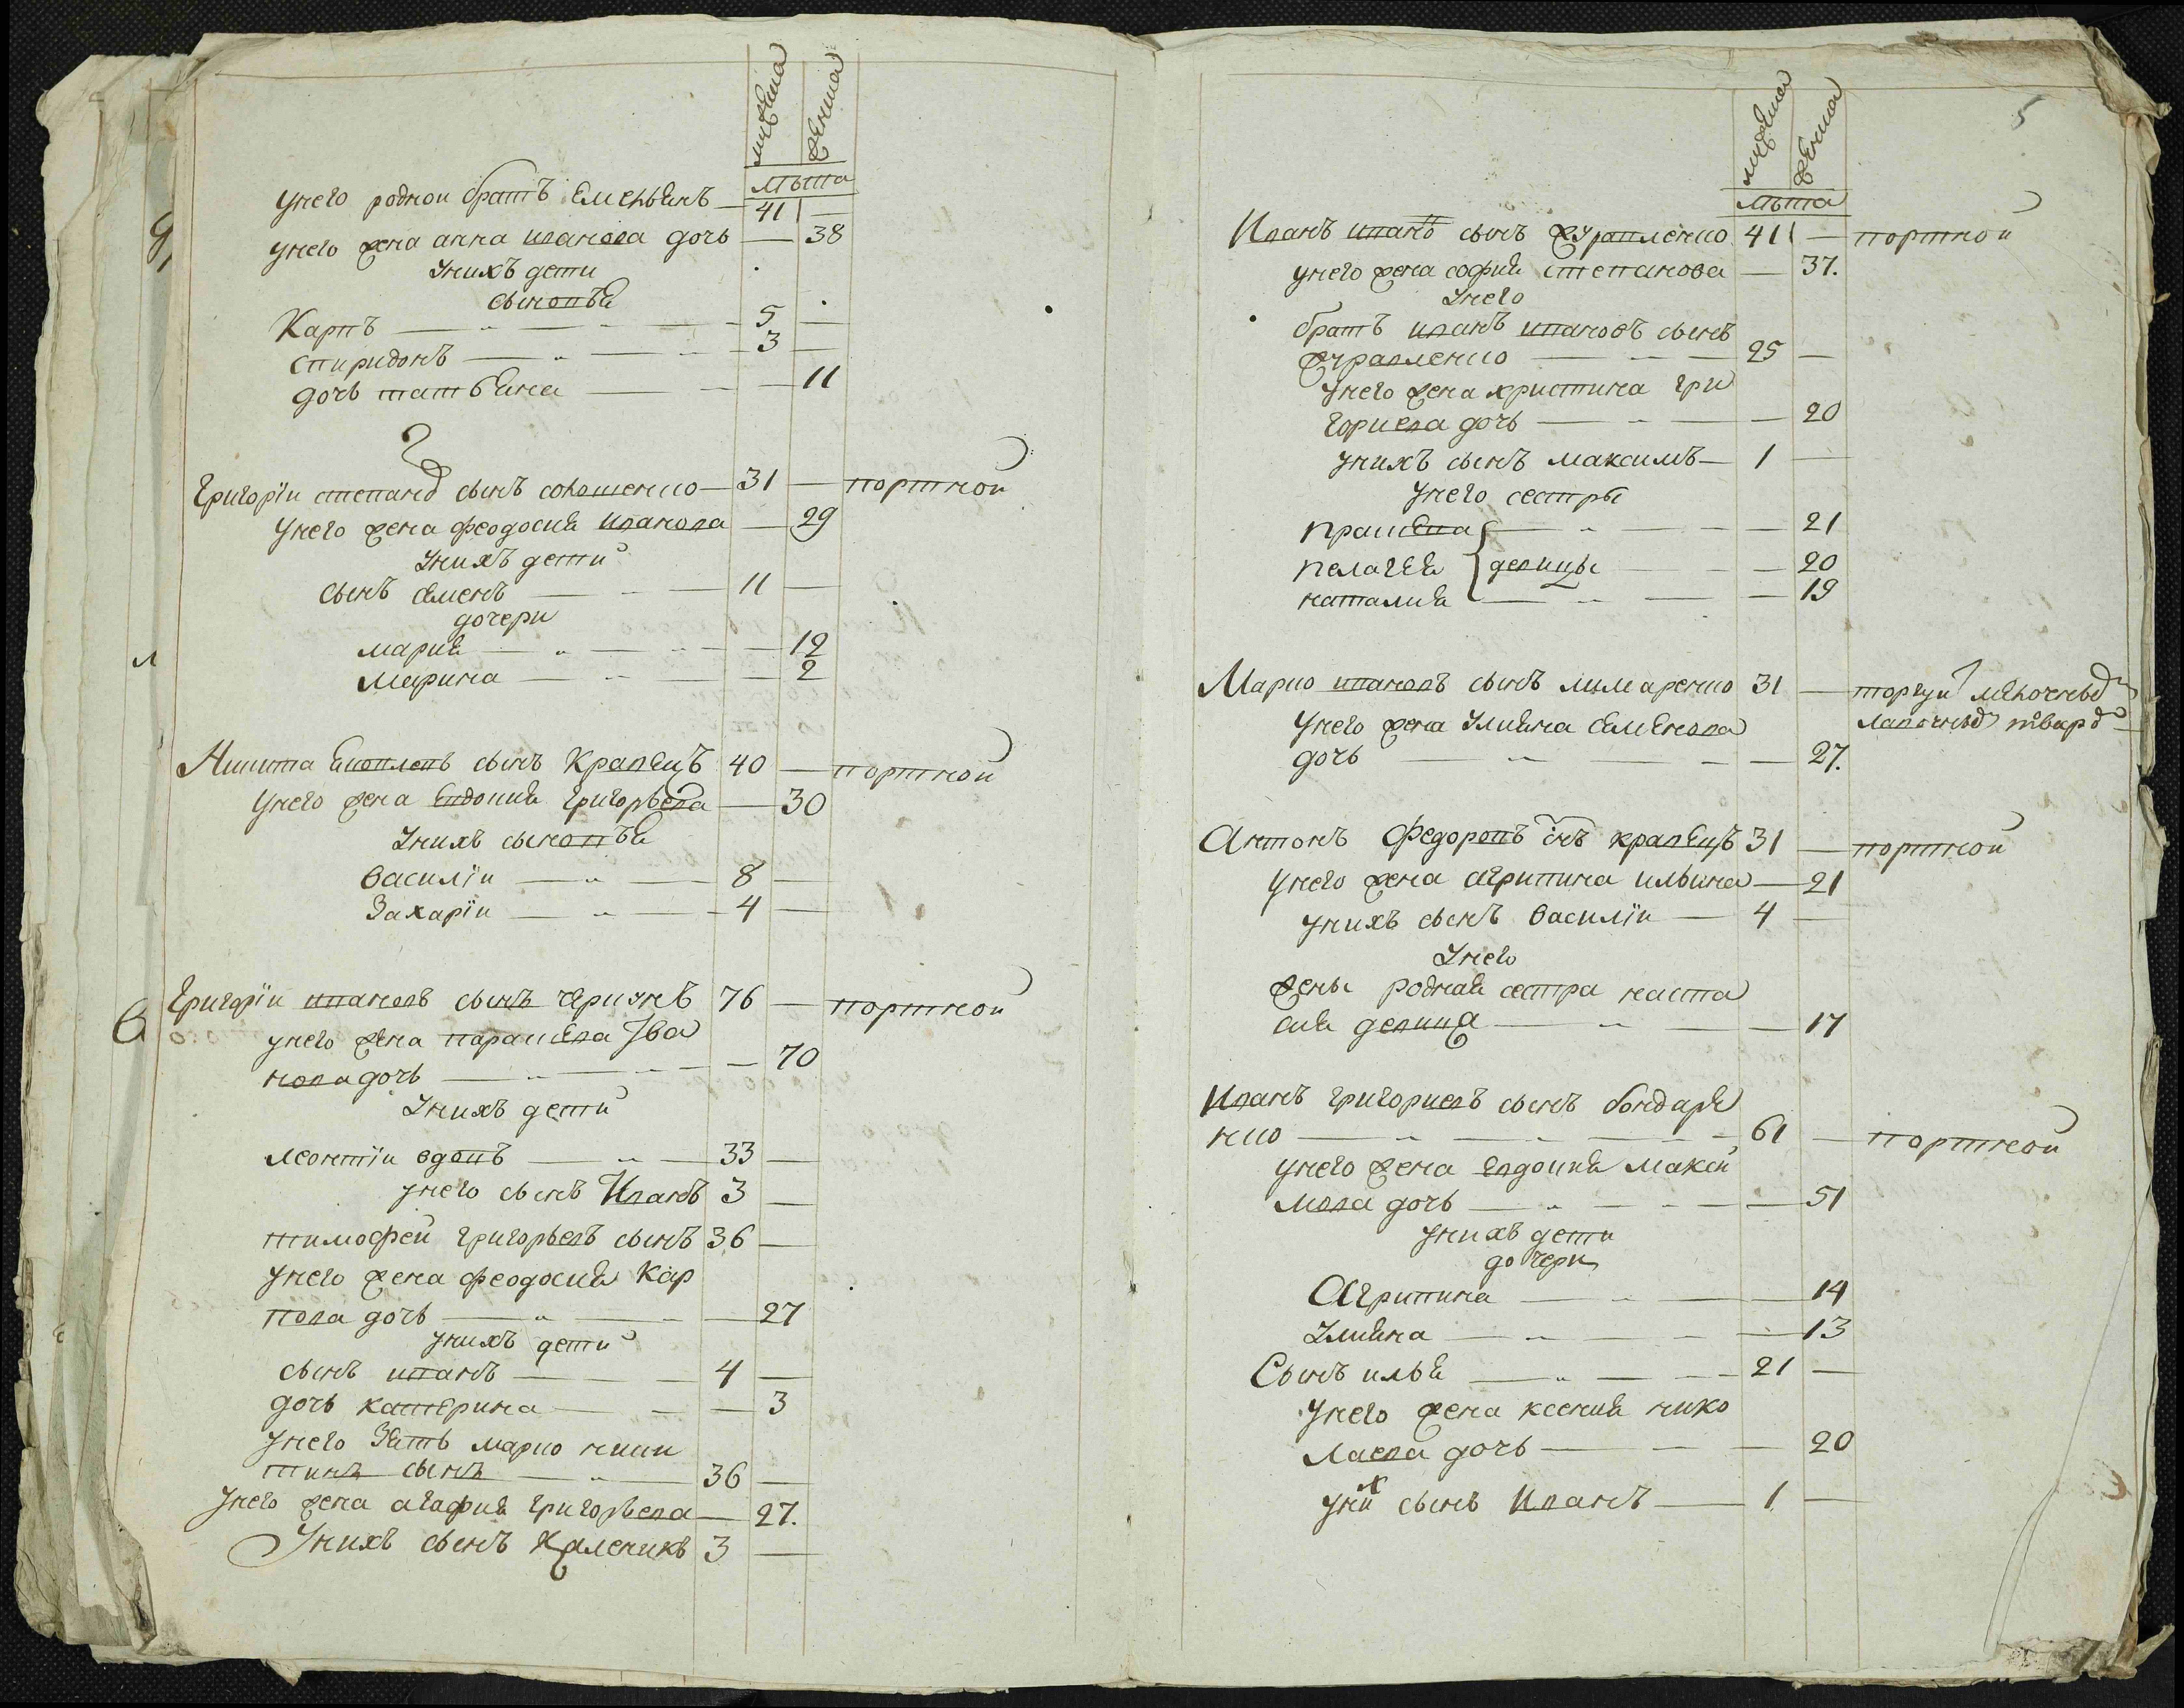 мужеска женска
лѣта
у него родной братъ Емельянъ — 41 —
у него жена анна иванова дочь — 38
у нихъ дети
сыновья
Карпъ — 5 —
спиридонъ — 3 —
дочь татьяна — 11
Григорїи степановъ сынъ 31 — портной
у него жена феодосия иванова — 29
у нихъ дети
сынъ семенъ — 11 —
дочери
мария — 12
Марина — 2
Никита сынъ Кравецъ 40 — портной
у него жена Евдокия Григорьева — 30
у нихъ сыновья
василїи — 8 —
Захарїи — 4 —
Григорїи ивановъ сынъ 76 — портной
у него жена параскева Ива
нова дочь — 70
у нихъ дети
леонтїи вдовъ — 33 —
у него сынъ Иванъ 3 —
тимофей григорьевъ сынъ 36 —
у него жена феодосия Кар
пова дочь — 27
у нихъ дети
сынъ иванъ — 4 —
дочь катерина — 3
у него зять марко ники
тинъ сынъ — 36 —
у него жена агафия григорьева — 27.
У нихъ сынъ Каленикъ 3 —
5
мужеска женска
лѣта
Иванъ ивановъ сынъ журавленко 41 — портной
у него жена софия степанова — 37.
у него
братъ иванъ ивановъ сынъ
журавленко — 25 —
у него жена христина гри
гориева дочь — 20
у нихъ сынъ максимъ — 1 —
у него сестры
праскева — 21
пелагея девицы — 20
наталия — 19
Марко ивановъ сынъ лимаренко 31 —
у него жена улияна семенова
дочь — 27.
Антонъ Федоровъ снъ кравецъ 31 — портной
у него жена агрипина ильина — 21
у нихъ сынъ василїи — 4 —
у него
жены родная сестра наста
сия девица — 17
Иванъ григориевъ сынъ бондаре
нко — 61 — портной
у него жена евдокия макси
мова дочь — 51
у нихъ дети
дочери
Агрипина — 14
Улияна — 13
Сынъ илья — 21 —
у него жена ксения нико
лаева дочь — 20
у них сынъ Иванъ — 1 —